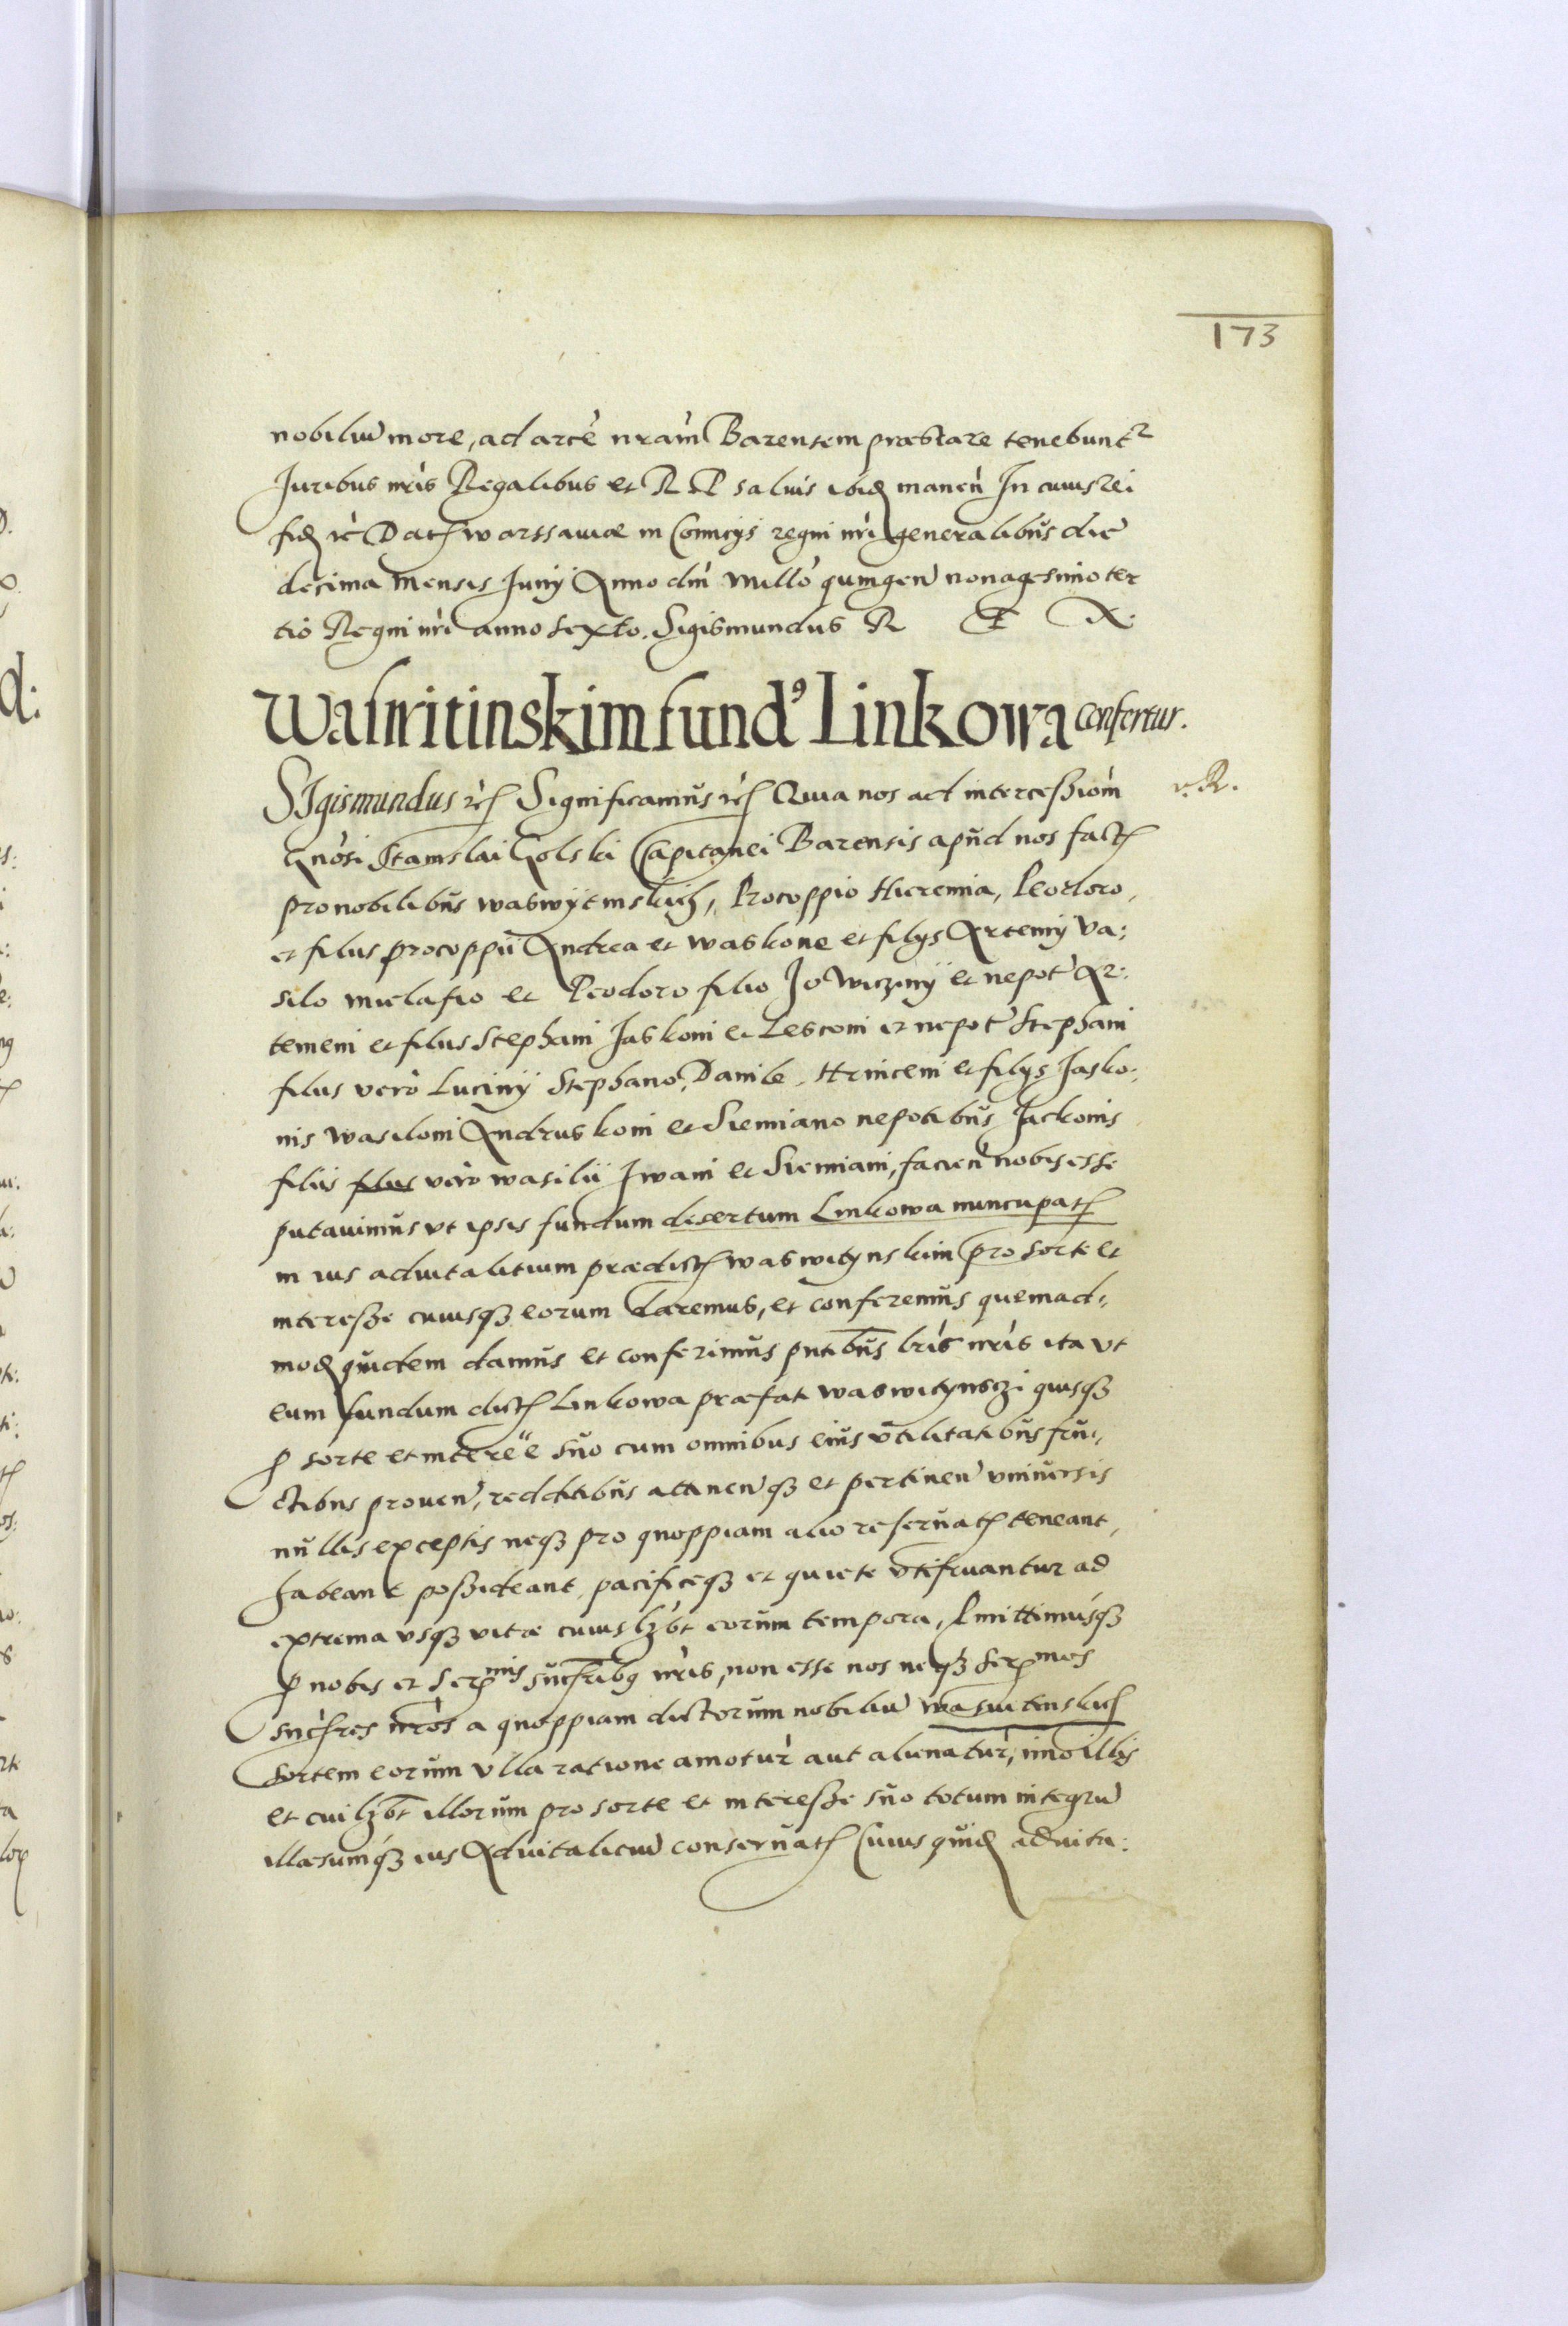 173
nobiliu more, ad arcē nrām Barensem præstare tenebuntr
Juribus nris Regalibus et R P saluis ibid manen In cuius rei
fid rc Dat Warssauiæ in Comicys regni nri generalibus die
decima mensis Juny Anno dni millo quingen nonagesimo ter
tio Regni nri anno sexto. Sigismundus R
Waswitinskim fund9 Linkowa confertur.
SIgismundus rc Significamus rc Quia nos ad intercessiom
r. R.
Gnosi Stanislai Golski Capitanei Barensis apud nos fact
pro nobilibus waswytinskich, Procoppio Hieremia, Peodoro,
et filiis procoppii Andrea et waskone et filys Artemy Va:
silo mielafio et Peodoro filio Jowiczny et nepot Ar:
temeni et filiis Stephani Jaskoni et Lesconi et nepot Stephani
filiis vero Luciny Stephano, Danile, Hrinceni et filys Jasko:
nis wasiloni Andruskoni et Siemiano nepotibus Jackonis
filiis filiis vero wasilii Jwani et Siemiani, facien nobis esse
putauimus vt ipsis fundum desertum Linkowa nuncupat
in ius aduitalitium prædict waswitynskim pro sorte et
interesse cuiusq3 eorum daremus, et conferemus quemad:
mod quidem damus et conferimus pntibus lris nris ita vt
eum fundum dict Linkowa præfati waswitynsczi quisq3
p sorte et interee suo cum omnibus eius vtilitatibus fru:
ctibus prouen, redditibus attinen q3 et pertinen vniuersis
nullis exceptis neq3 pro quoppiam alio reseruat teneant,
habeant possideant, pacificeq3 et quiete vtifruantur ad
extrema vsq3 vitæ cuiusl3bt eorum tempora, Pmittimusq3
p nobis et Sermis succrib9 nris, non esse nos neq3 Sermos
succres nros a quoppiam dictorum nobiliu wasuitinskich
sortem eorum vlla ratione amotur aut alienatur, imo illis
et cuil3bt illorum pro sorte et interesse suo totum integru
illæsumq3 ius Aduitalicium conseruat Cuius quid aduita: